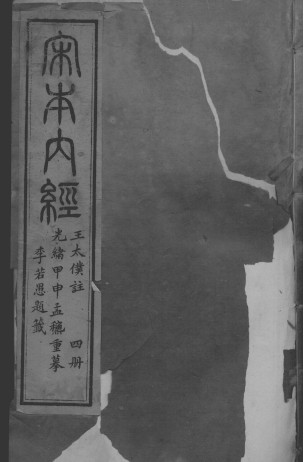 宋本內經
王太僕註 四册
光緒甲申孟穐重摹
李若愚題籤